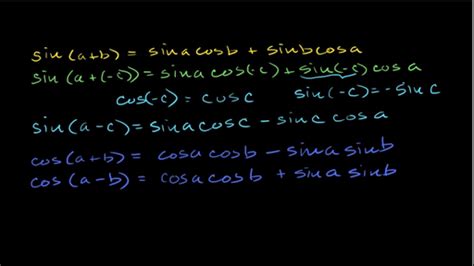 sin(a+b) = sina cosb + sinb cosa
sin(a+(-c)) = sina cos(-c) + sin(-c) cosa
cos(-c) = cosc sin(-c) = -sinc
sin(a-c) = sina cosc - sinc cosa
cos(a+b) = cosa cosb - sina sinb
cos(a-b) = cosa cosb + sina sinb